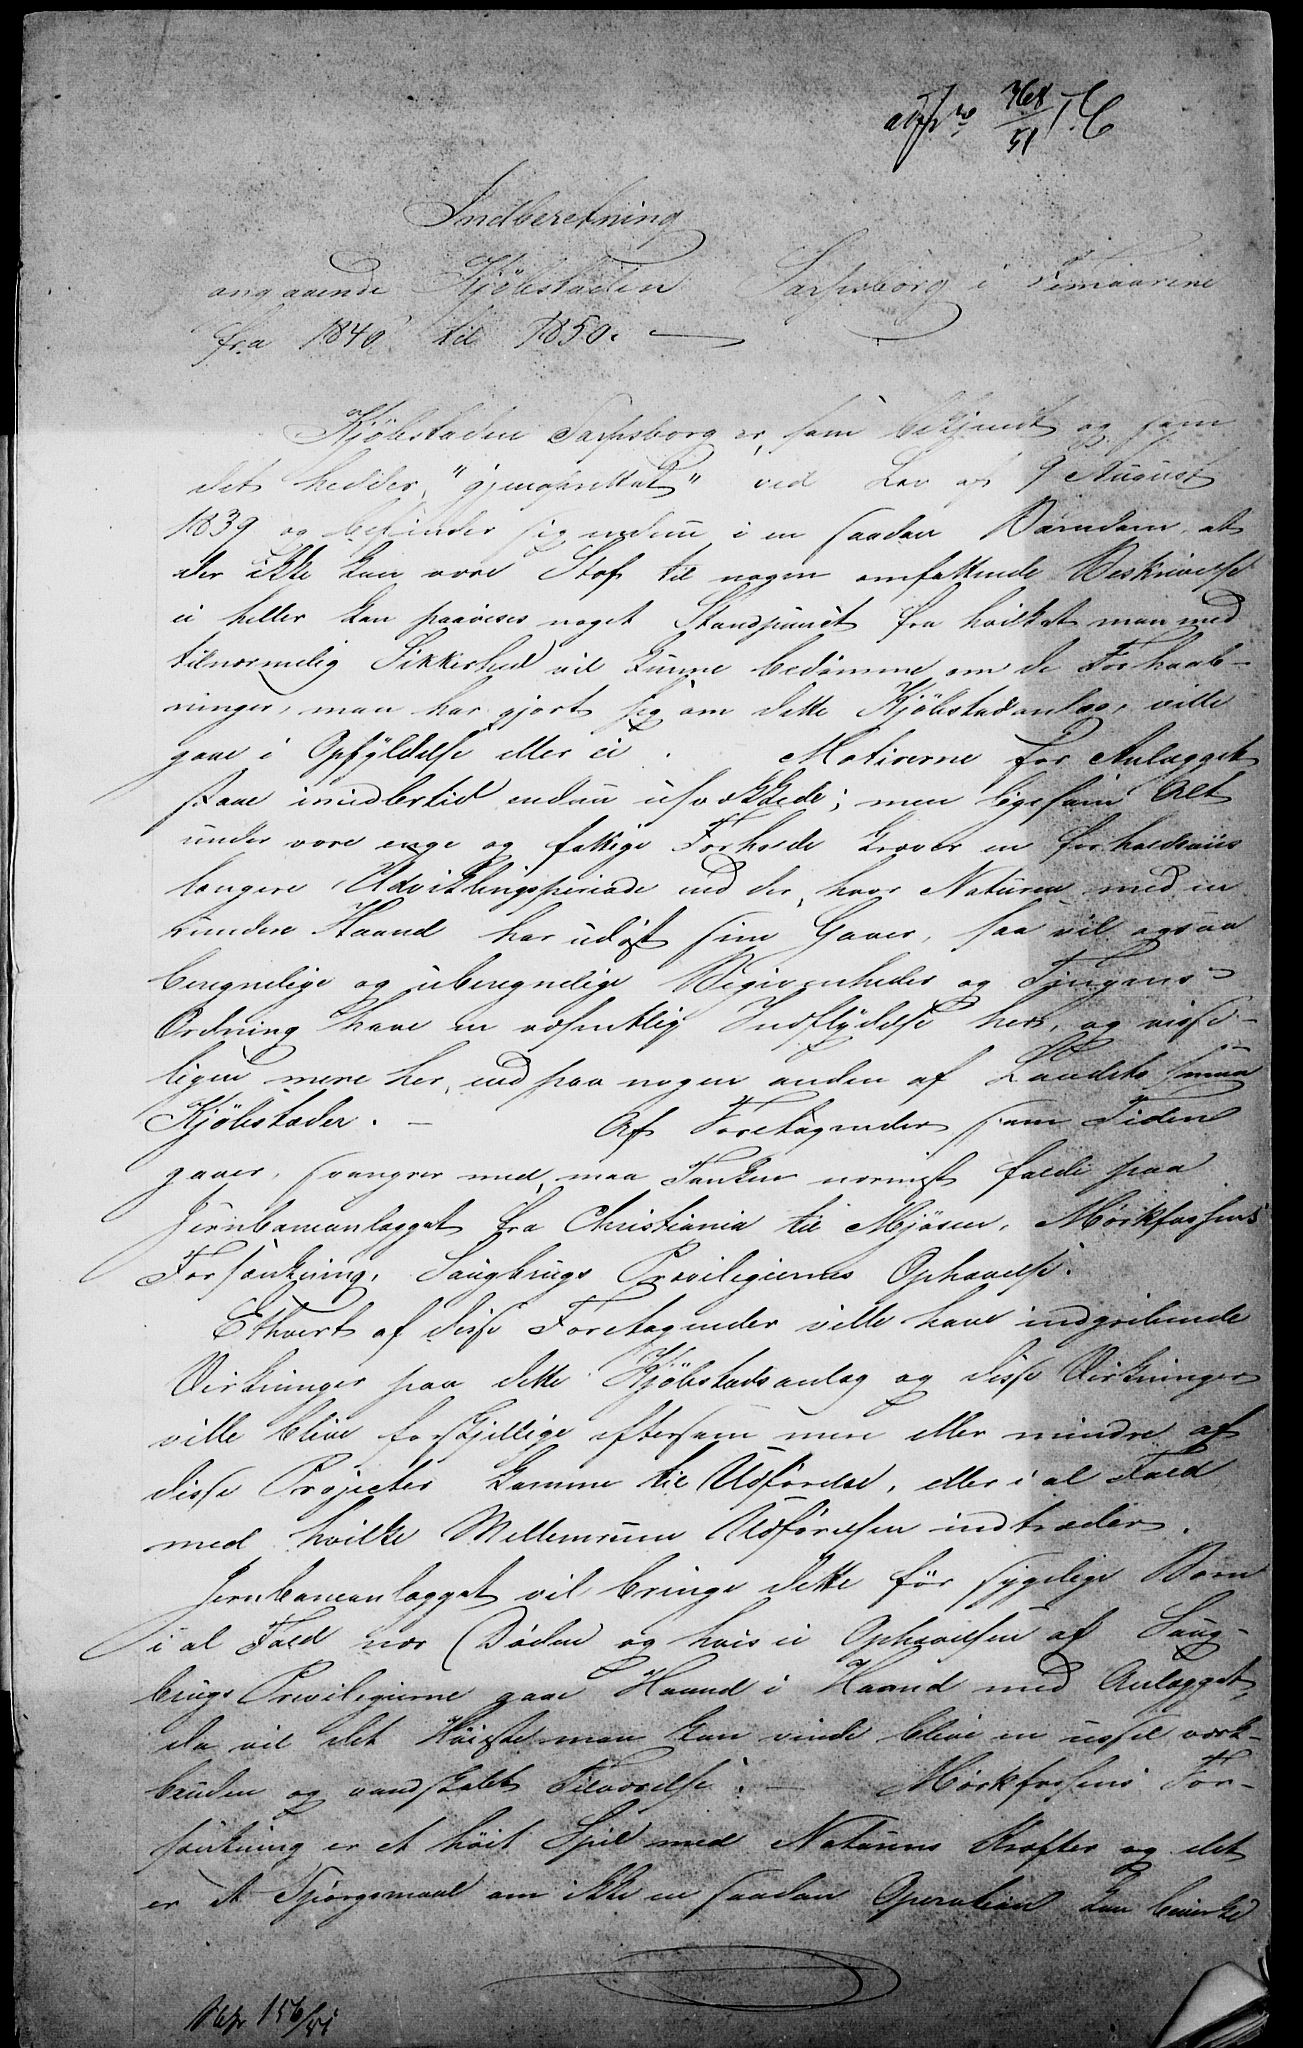 368
51
Indberetning
angaaende Kjöbstaden Sarpsborg i Femaarene
fra 1846 til 1850.
Kjöbstaden Sarpsborg er, som bekjendt og som
det hedder, "gjenoprettet" ved Lov af 9 August
1839 og befinder sig endnu i en saadan Barndom, at
der ikke kan være Stof til nogen omfattende Beskrivelse
ei heller kan paavises noget Standpunct fra hvilket man med
tilnærmelig Sikkerhed vil kunne bedömme om de Forhaab-
ninger, man har gjort sig om dette Kjöbstadanlæg, ville
gaae i Opfyldelse eller ei. Motiverne for Anlægget
staae imidlertid endnu usvækkede; men ligesom Alt
under vore enge og fattige Forholde kræver en forholdsviis
længere Udviklingsperiode end der, hvor Naturen med en
rundere Haand har udöst sine Gaver, saa vil ogsaa
beregnelige og uberegnelige Begivenheder og Tingens
Ordning have en væsentlig Indflydelse her, og visse-
ligen mere her, end paa nogen anden af Landets smaa
Kjöbstæder. - Af Foretagender som Tiden
gaaer svanger med, maa Tanken nærmest falde paa
Jernbaneanlægget fra Christiania til Mjösen, Mörkfossens
Forsænkning, Saugbrugs Privilegiernes Ophævelse.
Ethvert af disse Foretagender ville have indgribende
Virkninger paa dette Kjöbstadsanlæg og disse Virkninger
ville blive forskjellige eftersom mere eller mindre af
disse Projecter komme til Udförelse, eller i al Fald
med hvilke Mellemrum Udförelsen indtræder.
Jernbaneanlægget vil bringe dette för sygelige Barn
i al Fald nær Döden og hvis ei Ophævelsen af Saug-
brugs Privilegierne gaae Haand i Haand med Anlægget,
da vil det Höieste man kan vinde blive en ussel værk-
bruden og vandskabt Tilværelse. - Mörkfossens For-
sænkning er et höit Spil med Naturens Kræfter og det
er et Spörgsmaal om ikke en saadan Operation kan bevirke
156/51